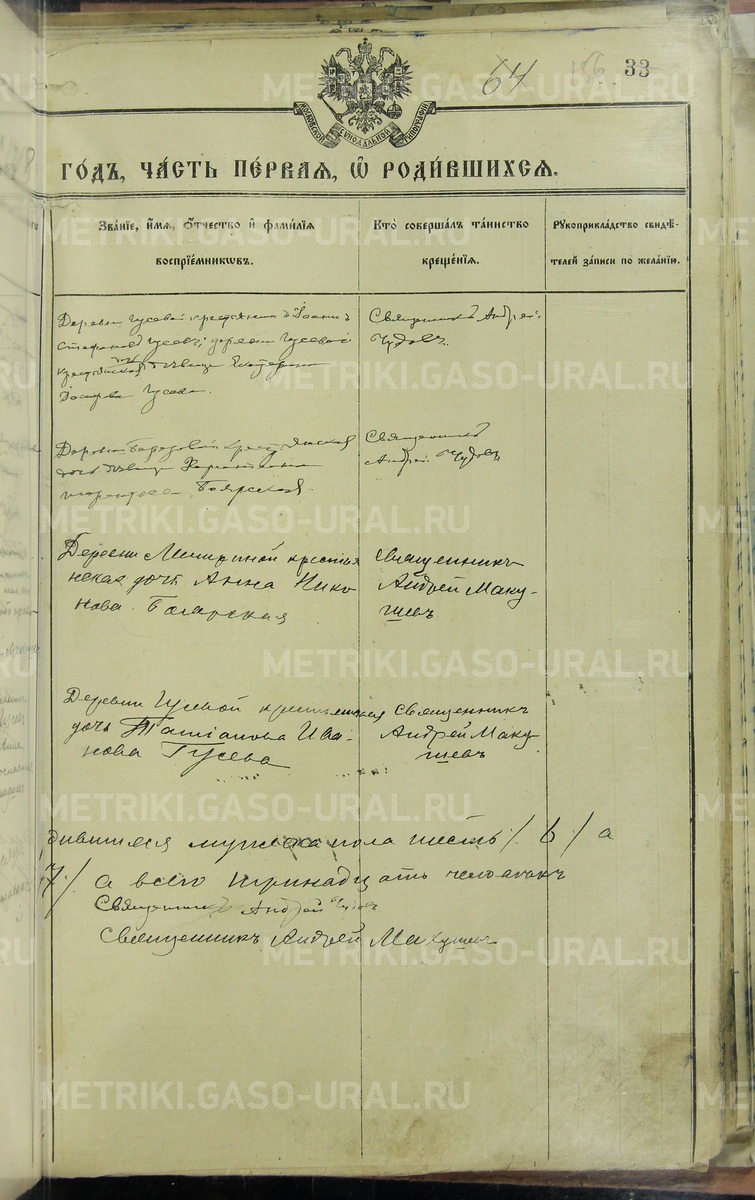 64
33
МОСКОВСКОЙ СѴНОДАЛЬНОЙ ТИПОГРАФІИ
ГО́ДЪ, ЧА́СТЬ ПЕ́РВАѦ, Ѡ҆ РОДИ́ВШИХСѦ.
Зва́нїе, и҆́мѧ, ѻ҆́тчество и҆ фами́лїѧ
воспрїе́мниковъ.
Кто̀ соверша́лъ та́инство
креще́нїѧ.
Рꙋкоприкла́дство свидѣ́-
телей за́писи по жела́нїю.
Деревни Гусевой крестьянинъ Іоаннъ
Стефановъ Гусевъ; деревни Гусевой
крестьянская дочь дѣвица Екатерина
Гусева.
Священникъ Андрей
Чудовъ.
Деревни крестьянская
дочь дѣвица
Боярская.
Священникъ
Андрей Чудовъ
Деревни крестья
нская дочь Анна Нико
нова Боярская
Священникъ
Андрей Маку-
шевъ
Деревни Гусевой крестьянская
дочь Татіанова Ива-
нова Гусева
Священникъ
Андрей Маку
шевъ
дившихся мужеска пола шесть /6/ а
7/ а всего тринадцать человѣкъ
Священникъ Андрей Чудовъ
Священникъ Андрей Макушевъ
METRIKI.GASO-URAL.RU